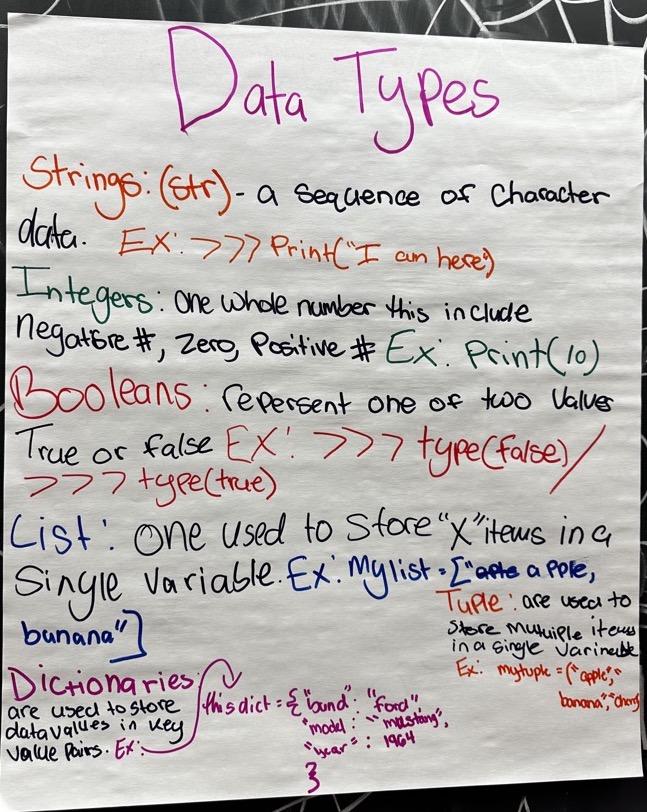 Data Types
Strings: (str) - a sequence of character
data. Ex: >>> Print("I am here")
Integers: One whole number this include
negative #, Zero, Positive # Ex: Print(10)
Booleans: repersent one of two values
True or false EX: >>> type(false) /
>>> type(true)
List: One used to store "X" items in a
Single Variable. Ex: Mylist = [" apple,
banana"]
Tuple: are used to
store mutuiple items
in a single varineable
Ex: mytuple = ("apple",
banana", "cherry
Dictionaries:
are used to store
data values in key
value pairs. Ex:
this dict = { "bund": "ford"
"model": "mustang",
"year": 1964
}